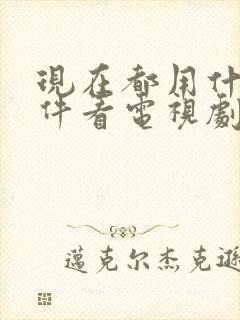 現在都用什
件看電視劇
邁克尔杰克遜